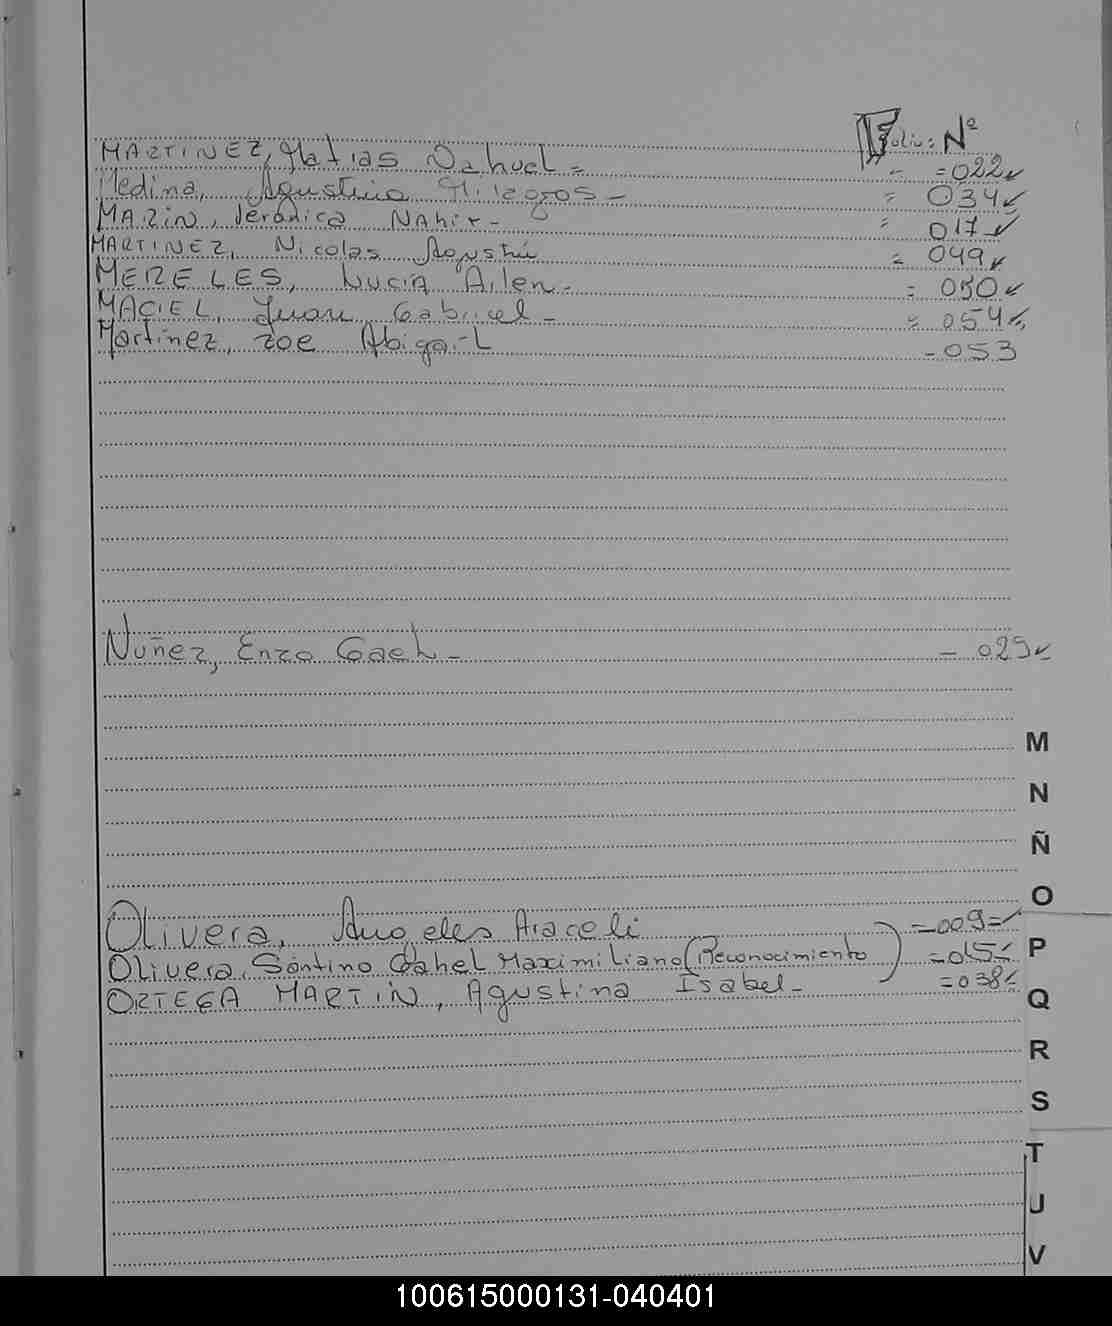 Folio: Nº
MARTINEZ, Matias Nahuel = = 022
Medina, Agustina Milagros - = 034
MARIN, Verónica NAHIR - = 017
MARTINEZ, Nicolas Agustín = 049
MERELES, LUCIA Ailen - = 050
MACIEL, Juan Gabriel - = 054
Martinez, Zoe Abigail - 053
Nuñez, Enzo Gael - = 029
Olivera, Angeles Araceli = 009 =
Olivera, Santino Gahel Maximiliano (Reconocimiento) = 015
ORTEGA MARTIN, Agustina Isabel - = 038
M
N
Ñ
O
P
Q
R
S
T
U
V
100615000131-040401